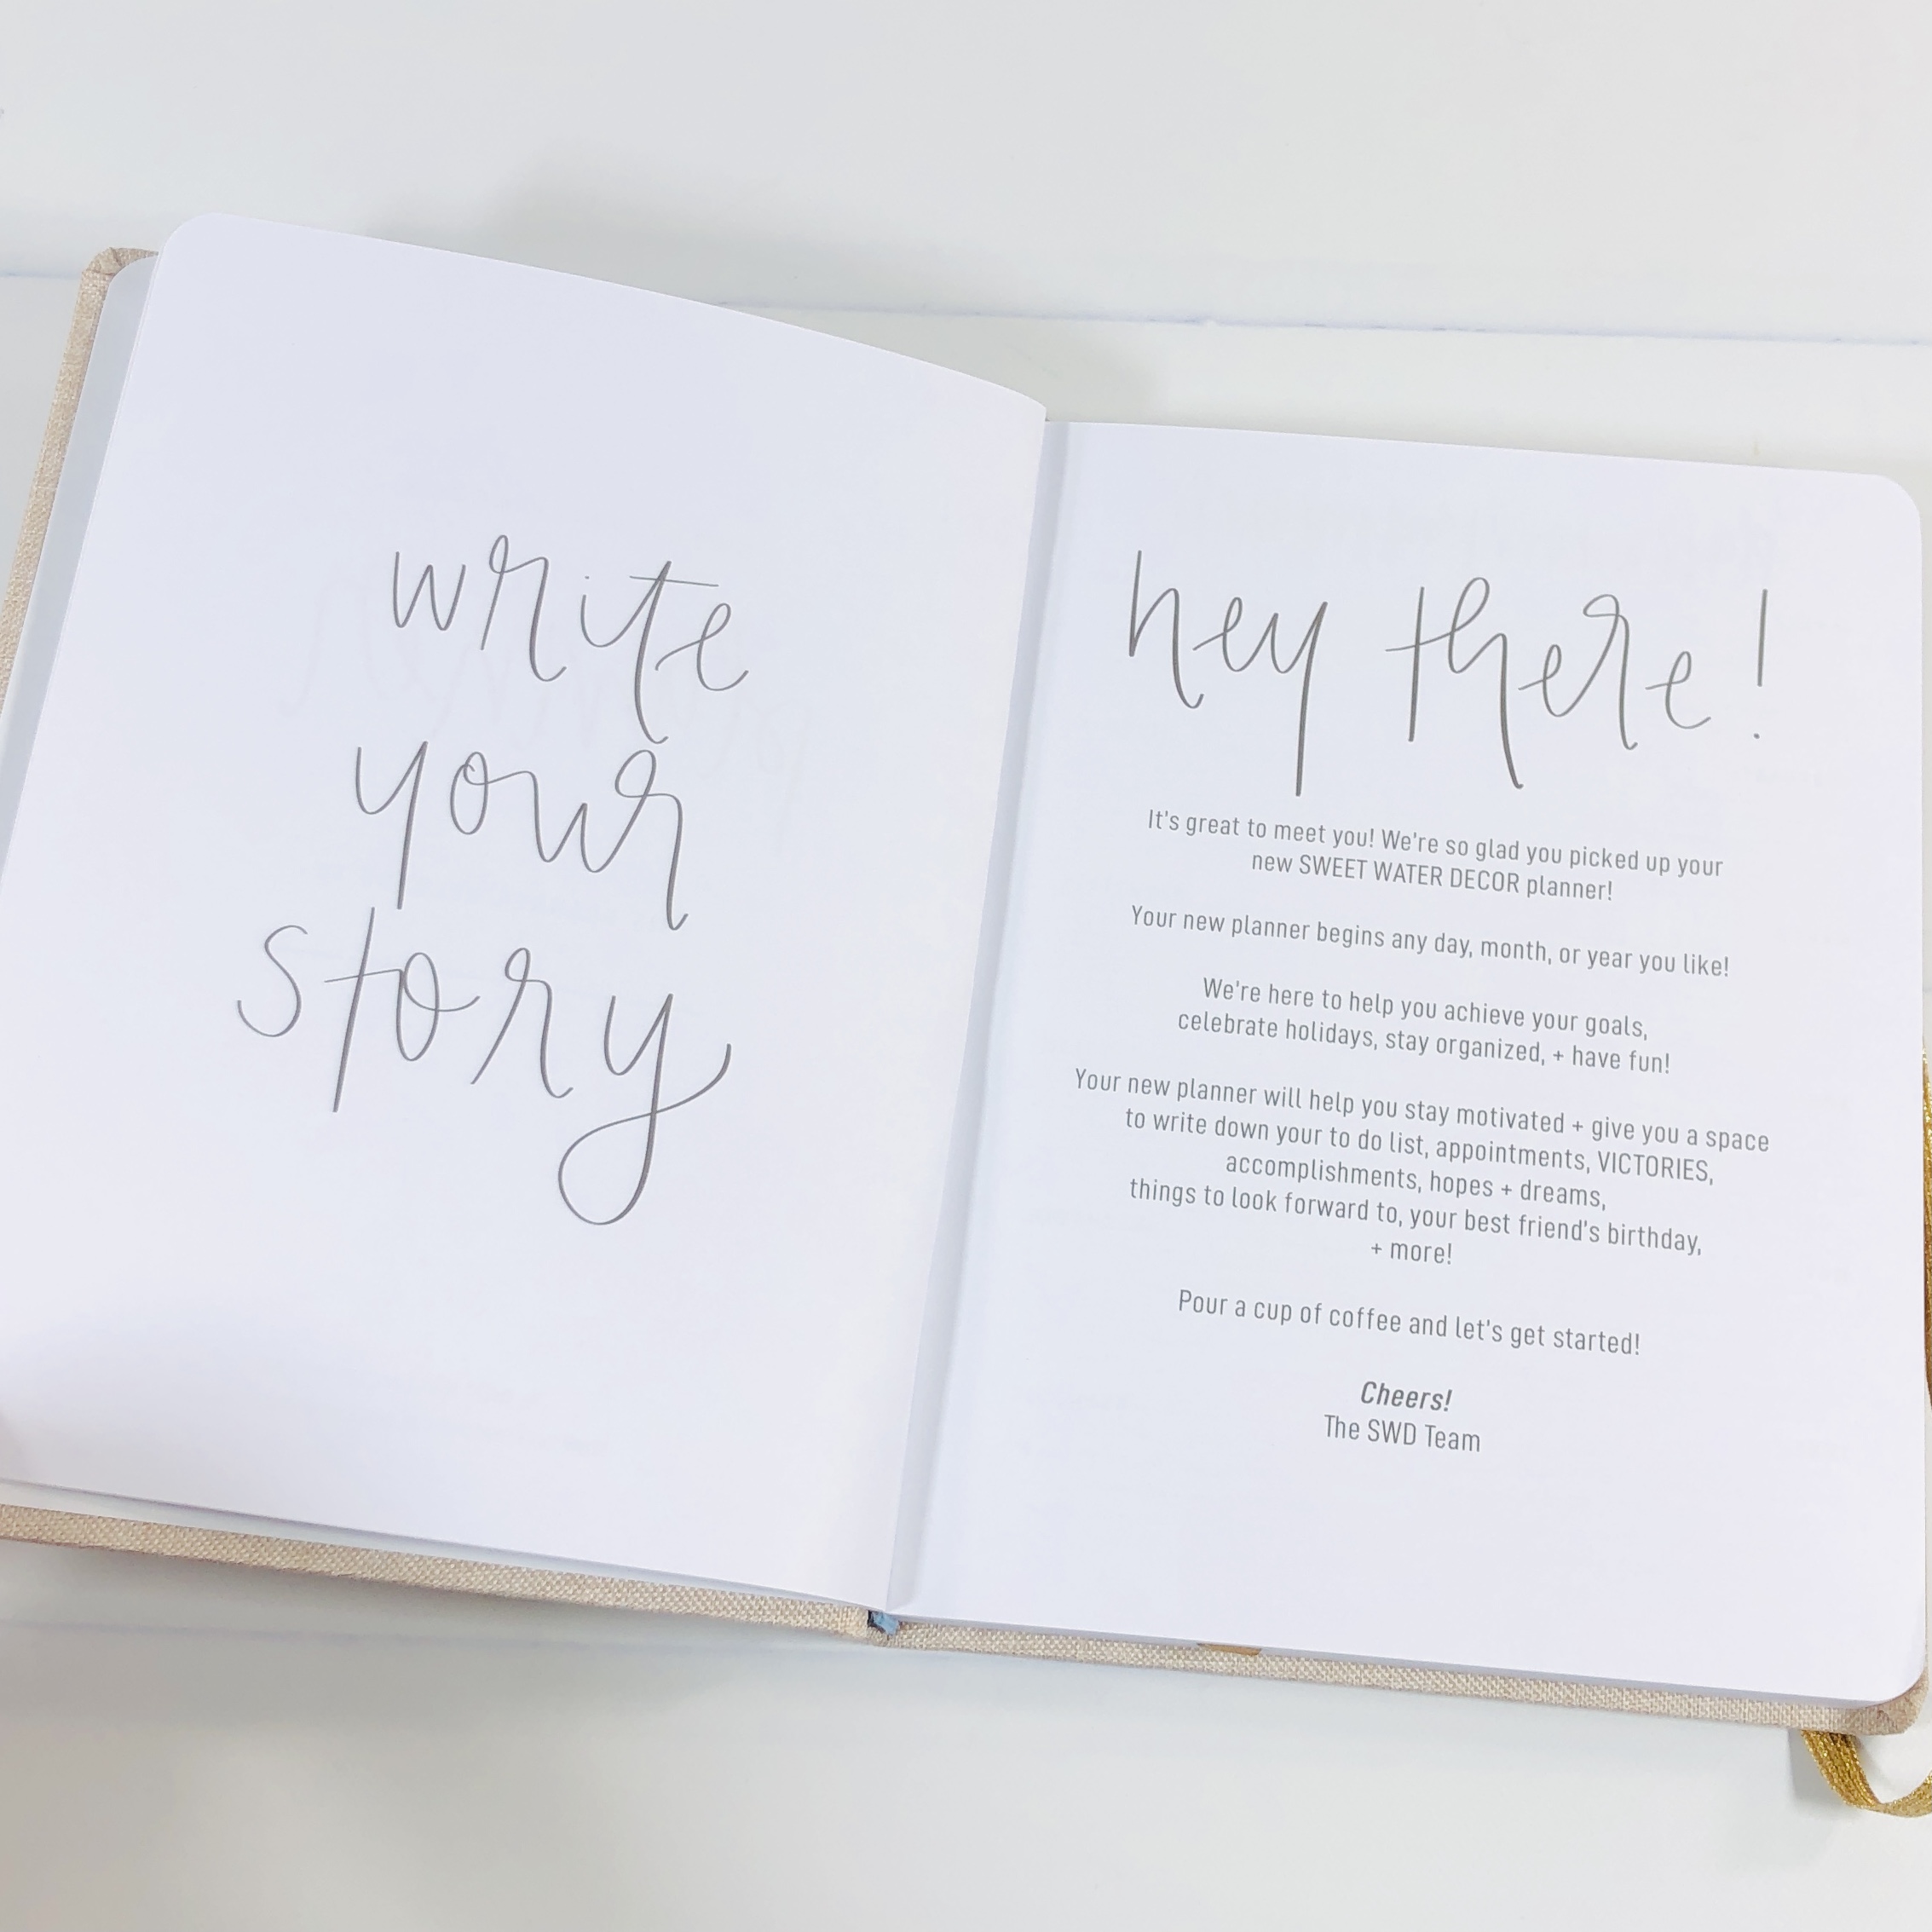 write
your
story
hey there!
It's great to meet you! We're so glad you picked up your
new SWEET WATER DECOR planner!
Your new planner begins any day, month, or year you like!
We're here to help you achieve your goals,
celebrate holidays, stay organized, + have fun!
Your new planner will help you stay motivated + give you a space
to write down your to do list, appointments, VICTORIES,
accomplishments, hopes + dreams,
things to look forward to, your best friend's birthday,
+ more!
Pour a cup of coffee and let's get started!
Cheers!
The SWD Team